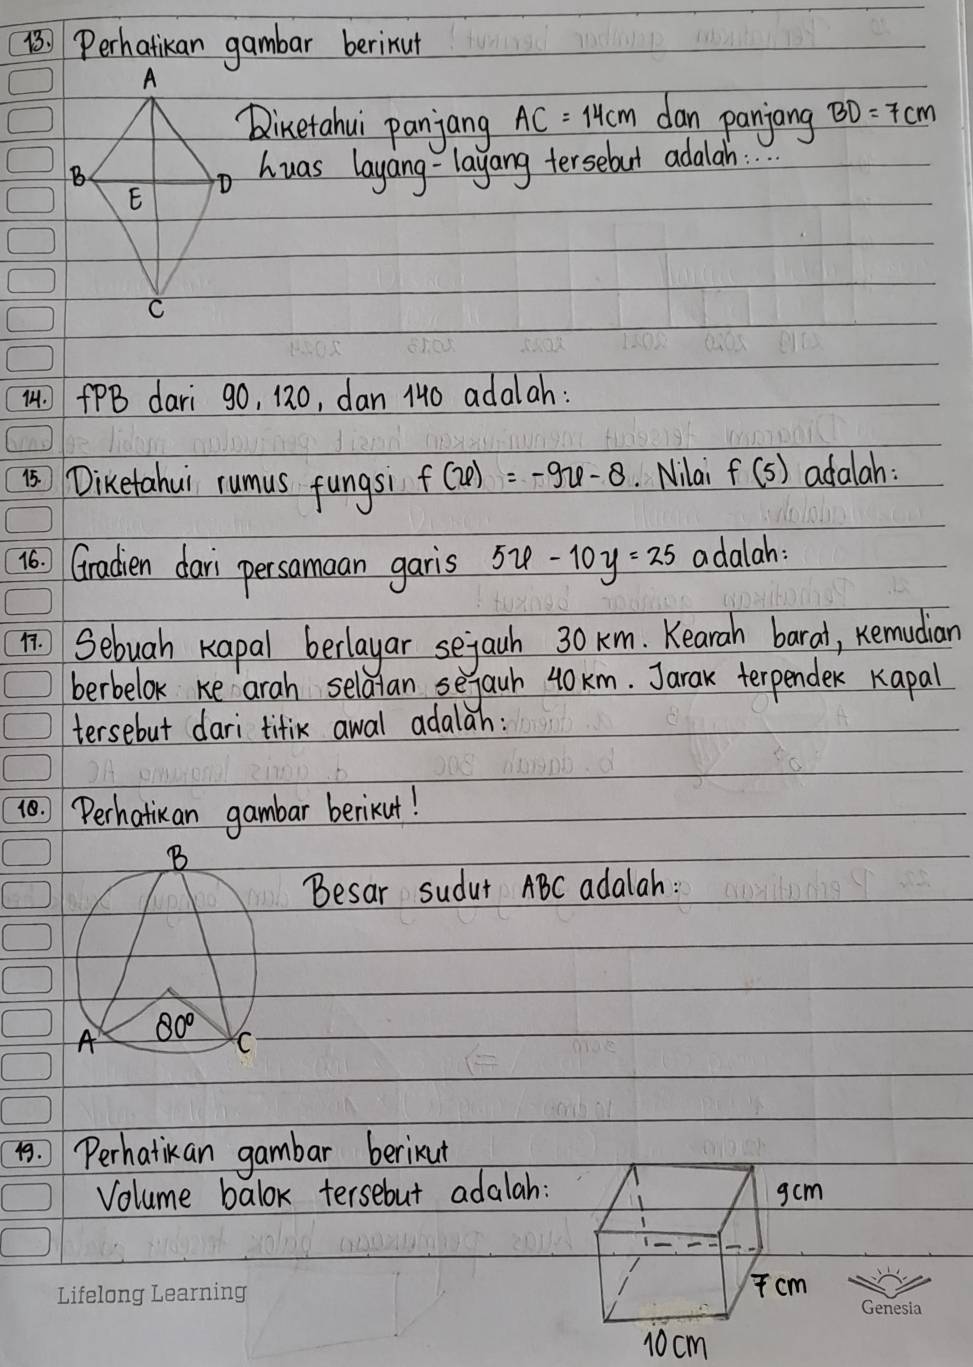 13. Perhatikan gambar berikut
A
Diketahui panjang AC = 14cm dan panjang BD = 7cm
B
D
Luas layang-layang tersebut adalah:...
E
C
14. FPB dari 90, 120, dan 140 adalah:
15. Diketahui rumus fungsi f(x) = -9x-8. Nilai f(5) adalah:
16. Gradien dari persamaan garis 5x - 10y = 25 adalah:
17. Sebuah kapal berlayar sejauh 30 km. Kearah barat, kemudian
berbelok ke arah selatan sejauh 40 km. Jarak terpendek kapal
tersebut dari titik awal adalah:
18. Perhatikan gambar berikut!
B
Besar sudut ABC adalah:
80°
A
C
19. Perhatikan gambar berikut
Volume balok tersebut adalah:
9cm
7 cm
10 cm
Lifelong Learning
Genesia